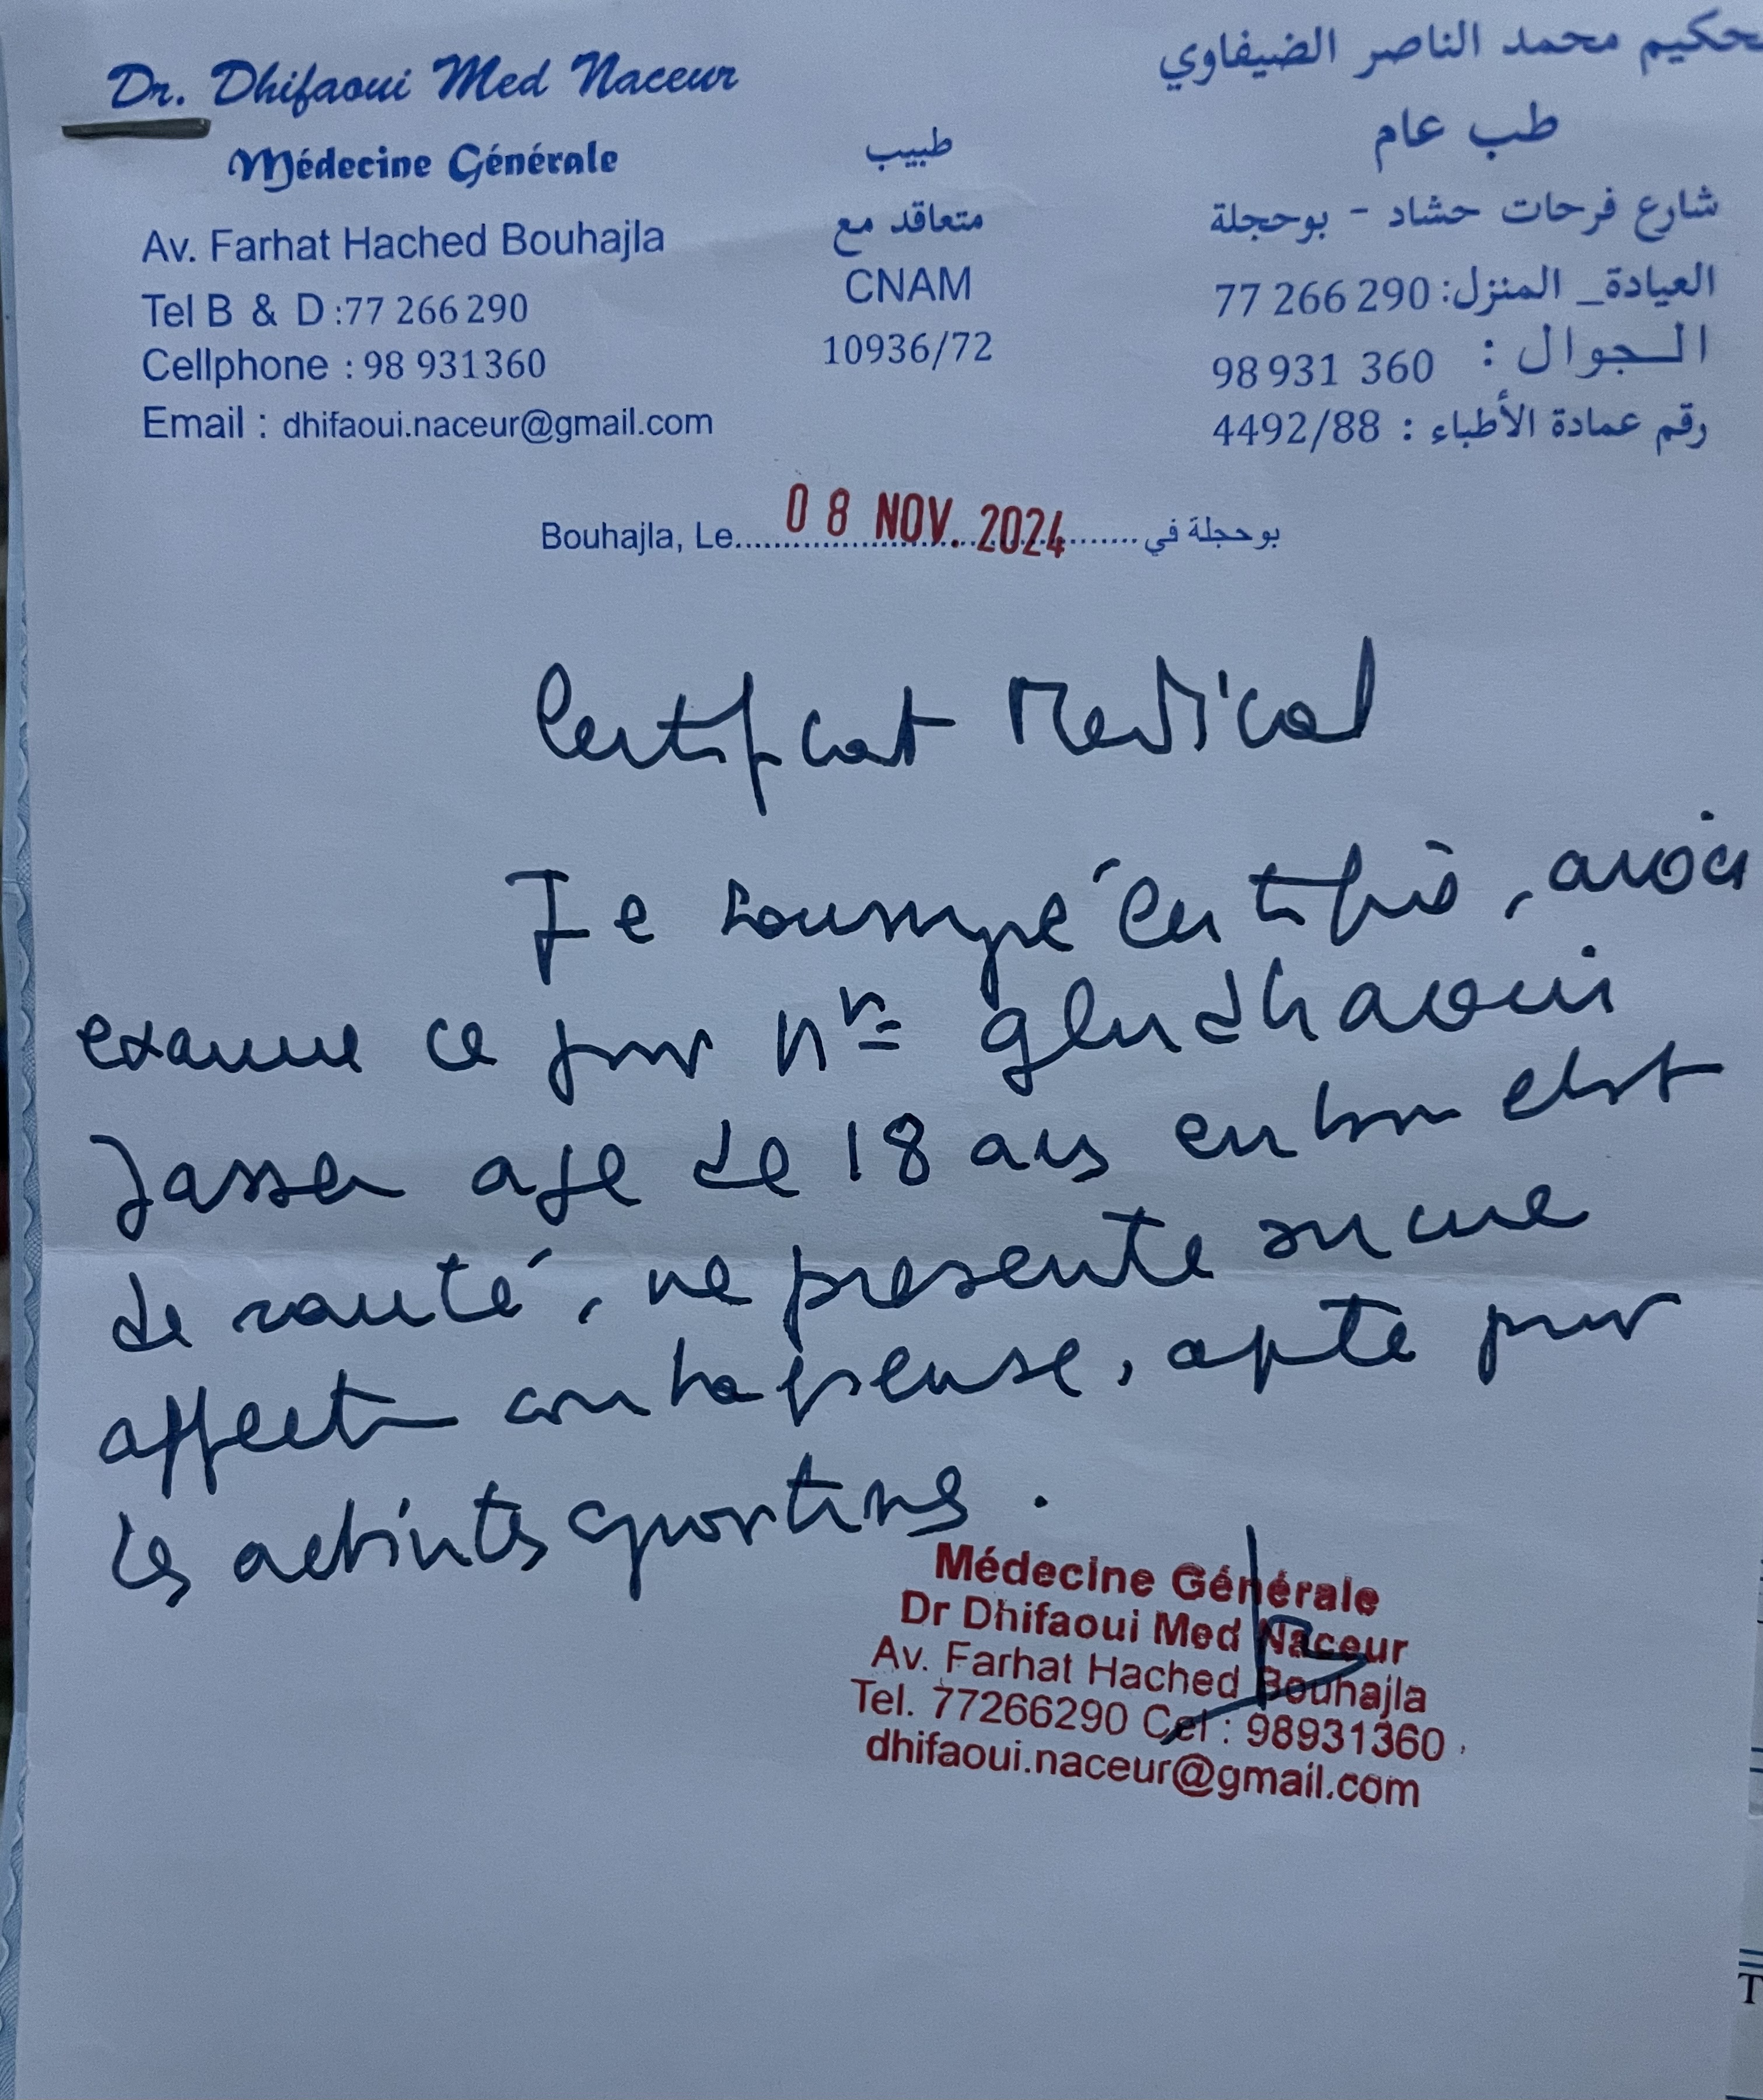 Dr. Dhifaoui Med Naceur
Médecine Générale
Av. Farhat Hached Bouhajla
Tel B & D :77 266 290
Cellphone : 98 931360
Email : dhifaoui.naceur@gmail.com
طبيب
متعاقد مع
CNAM
10936/72
حكيم محمد الناصر الضيفاوي
طب عام
شارع فرحات حشاد - بوحجلة
العيادة_ المنزل: 77 266 290
الـجوال : 98 931 360
رقم عمادة الأطباء : 4492/88
Bouhajla, Le 08 NOV. 2024 بوحجلة في
Certificat Medical
Je soussigné certifie, avoir
examine ce jour Mr
Jasser age de 18 ans en bon etat
de santé, ne presente aucune
affection contagieuse, apte pour
les activites sportives.
Médecine Générale
Dr Dhifaoui Med Naceur
Av. Farhat Hached Bouhajla
Tel. 77266290 Cel : 98931360
dhifaoui.naceur@gmail.com
T